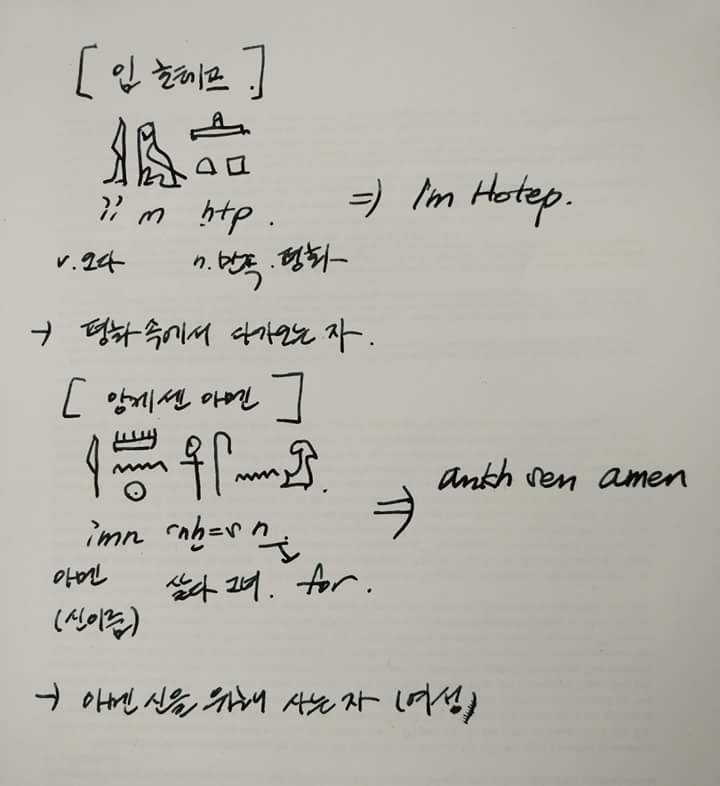 [ 임 호테프 ]
ii m ḥtp. => I'm Hotep.
v.오다 n.만족.평화
→ 평화 속에서 다가오는 자.
[ 앙케센 아멘 ]
imn ꜥnḫ=s n. => ankh sen amen
아멘 살다 그녀. for.
(신이름)
→ 아멘 신을 위해 사는 자 (여성)